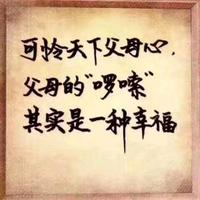 可怜天下父母心，
父母的“啰嗦”
其实是一种幸福